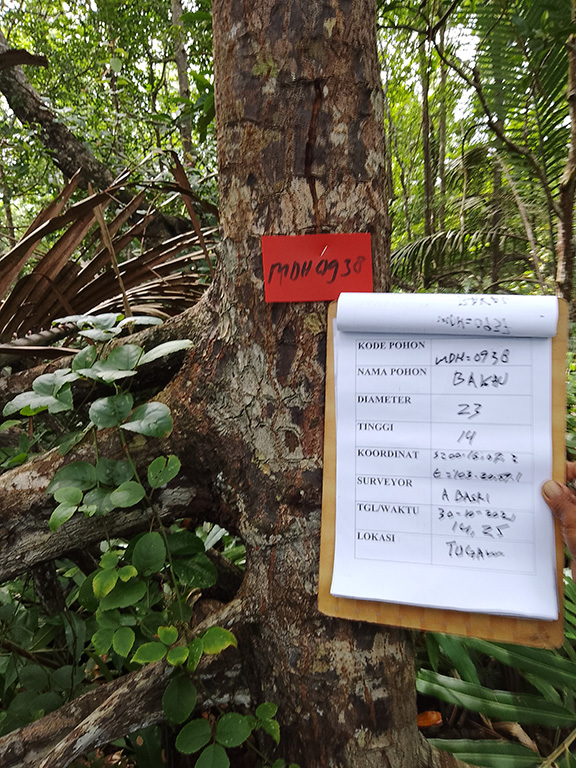 MDH 0938
KODE POHON MDH=0938
NAMA POHON BAKAU
DIAMETER 23
TINGGI 14
KOORDINAT
SURVEYOR A BASRI
TGL/WAKTU 30=10=2021
14,25
LOKASI